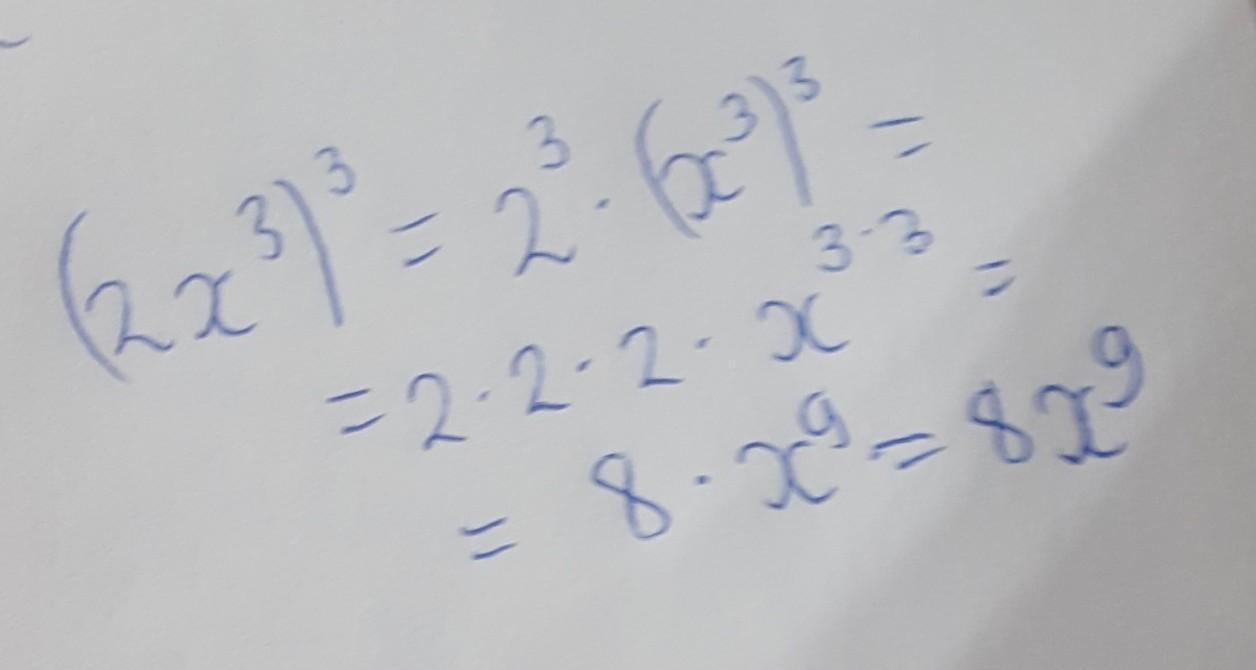 (2x³)³ = 2³ · (x³)³ =
= 2 · 2 · 2 · x³˙³ =
= 8 · x⁹ = 8x⁹